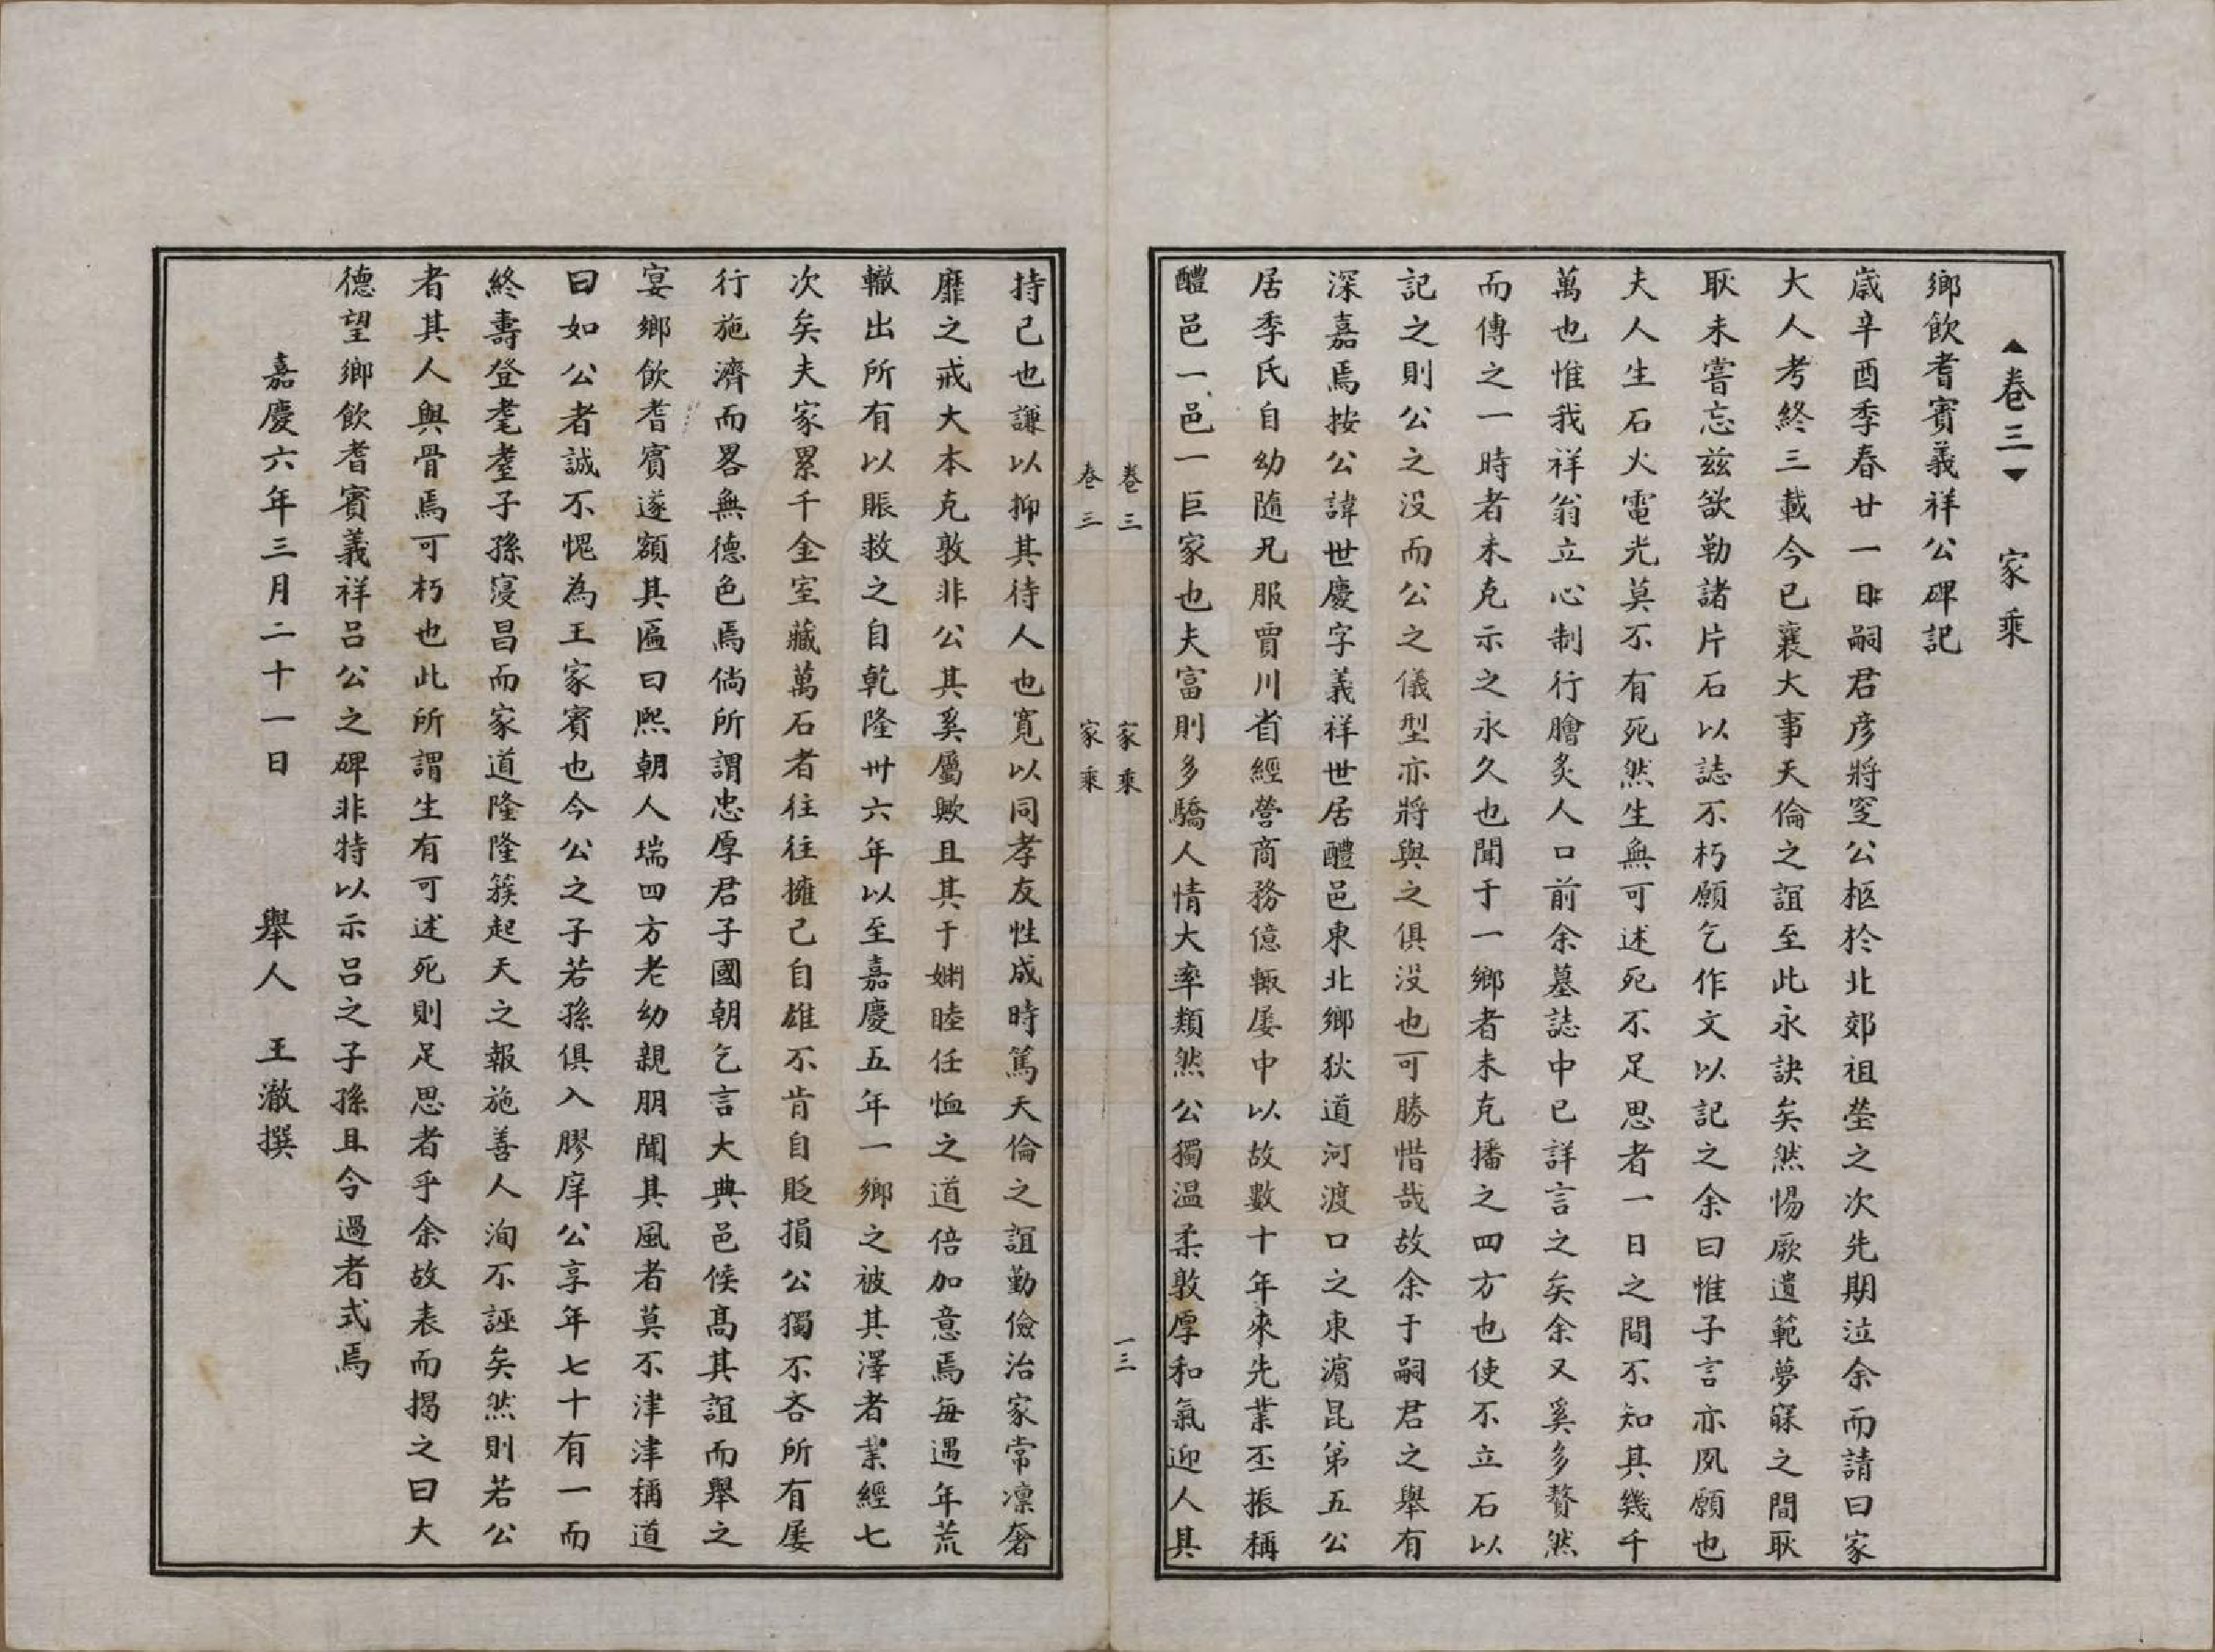 ▲卷三▼　家乘
鄉飲耆賓義祥公碑記
歲辛酉季春廿一日嗣君彥將窆公柩於北郊祖塋之次先期泣余而請曰家
大人考終三載今已襄大事天倫之誼至此永訣矣然惕厥遺範夢寐之間耿
耿未嘗忘玆欲勒諸片石以誌不朽願乞作文以記之余曰惟子言亦夙願也
夫人生石火電光莫不有死然生無可述死不足思者一日之間不知其幾千
萬也惟我祥翁立心制行膾炙人口前余墓誌中已詳言之矣余又奚多贅然
而傳之一時者未克示之永久也聞于一鄉者未克播之四方也使不立石以
記之則公之没而公之儀型亦將與之俱没也可勝惜哉故余于嗣君之舉有
深嘉焉按公諱世慶字義祥世居醴邑東北鄉狄道河渡口之東濵昆第五公
居季氏自幼隨兄服賈川省經營商務億輒屡中以故數十年來先業丕振稱
醴邑一邑一巨家也夫富則多驕人情大率類然公獨溫柔敦厚和氣迎人其
卷三　家乘　一三
卷三　家乘
持己也謙以抑其待人也寬以同孝友性成時篤天倫之誼勤儉治家常凛奢
靡之戒大本克敦非公其奚屬歟且其于婣睦任恤之道倍加意焉每遇年荒
輙出所有以賑救之自乾隆卅六年以至嘉慶五年一鄉之被其澤者業經七
次矣夫家累千金室藏萬石者往往擁己自雄不肯自貶損公獨不吝所有屡
行施濟而畧無德色焉倘所謂忠厚君子國朝乞言大典邑侯髙其誼而舉之
宴鄉飲耆賓遂額其匾曰熙朝人瑞四方老幼親朋聞其風者莫不津津稱道
曰如公者誠不愧為王家賓也今公之子若孫俱入膠庠公享年七十有一而
終壽登耄耋子孫寖昌而家道隆隆簇起天之報施善人洵不誣矣然則若公
者其人與骨焉可朽也此所謂生有可述死則足思者乎余故表而揭之曰大
德望鄉飲耆賓義祥呂公之碑非特以示呂之子孫且令過者式焉
嘉慶六年三月二十一日　舉人　王澈撰